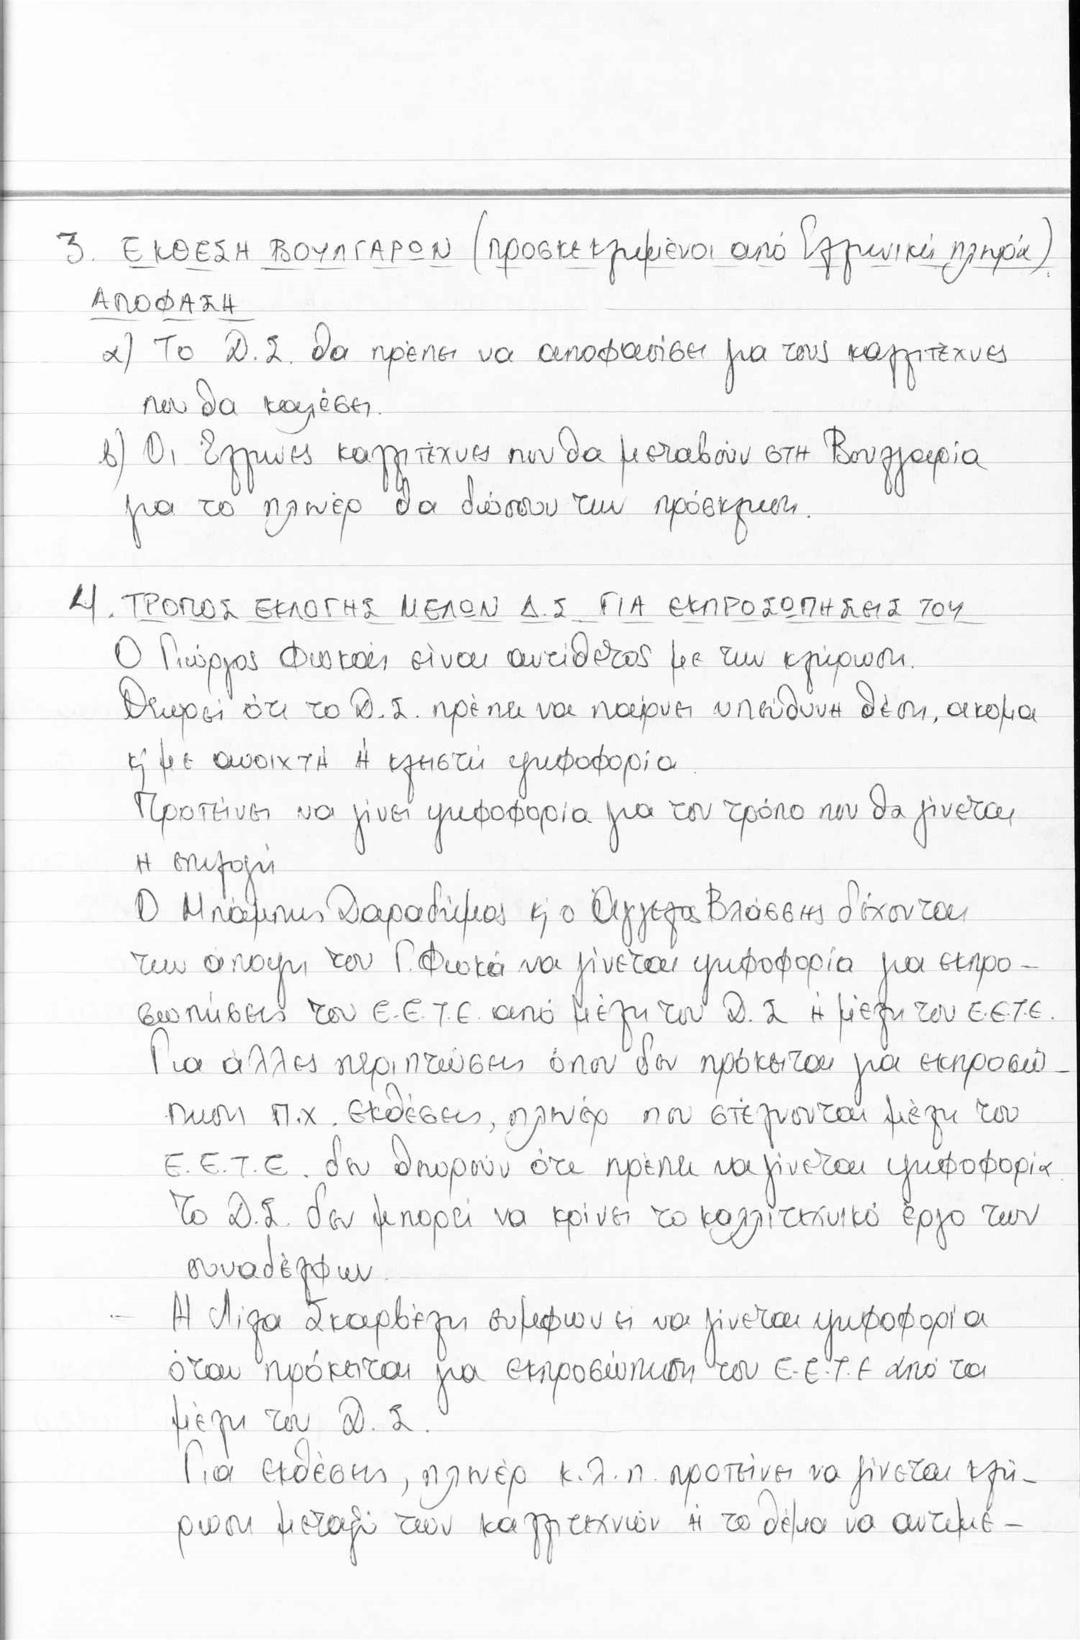 3. ΕΚΘΕΣΗ ΒΟΥΛΓΑΡΩΝ (προσκεκλημένοι από Ελληνική πλευρά)
ΑΠΟΦΑΣΗ
α) Το Δ.Σ. θα πρέπει να αποφασίσει για τους καλλιτέχνες
που θα καλέσει.
β) Οι Έλληνες καλλιτέχνες που θα μεταβούν στη Βουλγαρία
για το πλενέρ θα δώσουν την πρόσκληση.
4. ΤΡΟΠΟΣ ΕΚΛΟΓΗΣ ΜΕΛΩΝ Δ.Σ ΓΙΑ ΕΚΠΡΟΣΩΠΗΣΕΙΣ ΤΟΥ
Ο Γιώργος Φωκάς είναι αντίθετος με την κλήρωση.
Θεωρεί ότι το Δ.Σ. πρέπει να παίρνει υπεύθυνη θέση, ακόμα
κ' με ανοιχτή ή κλειστή ψηφοφορία
Προτείνει να γίνει ψηφοφορία για τον τρόπο που θα γίνεται
η επιλογή
Ο Μπάμπης Δαραδήμος κ' ο Άγγελος Βλάσσης δέχονται
την άποψη του Γ. Φωκά να γίνεται ψηφοφορία για εκπρο-
σωπήσεις του Ε.Ε.Τ.Ε. από μέλη του Δ.Σ ή μέλη του Ε.Ε.Τ.Ε.
Για άλλες περιπτώσεις όπου δεν πρόκειται για εκπροσώ-
πηση π.χ. εκθέσεις, πλενέρ που στέλνονται μέλη του
Ε.Ε.Τ.Ε. δεν θεωρούν ότι πρέπει να γίνεται ψηφοφορία
Το Δ.Σ. δεν μπορεί να κρίνει το καλλιτεχνικό έργο των
συναδέλφων
- Η Λίζα Σκαρβέλη συμφωνεί να γίνεται ψηφοφορία
όταν πρόκειται για εκπροσώπηση του Ε.Ε.Τ.Ε από τα
μέλη του Δ.Σ.
Για εκθέσεις, πλενέρ κ.λ.π. προτείνει να γίνεται κλή-
ρωση μεταξύ των καλλιτεχνών ή το θέμα να αντιμε-